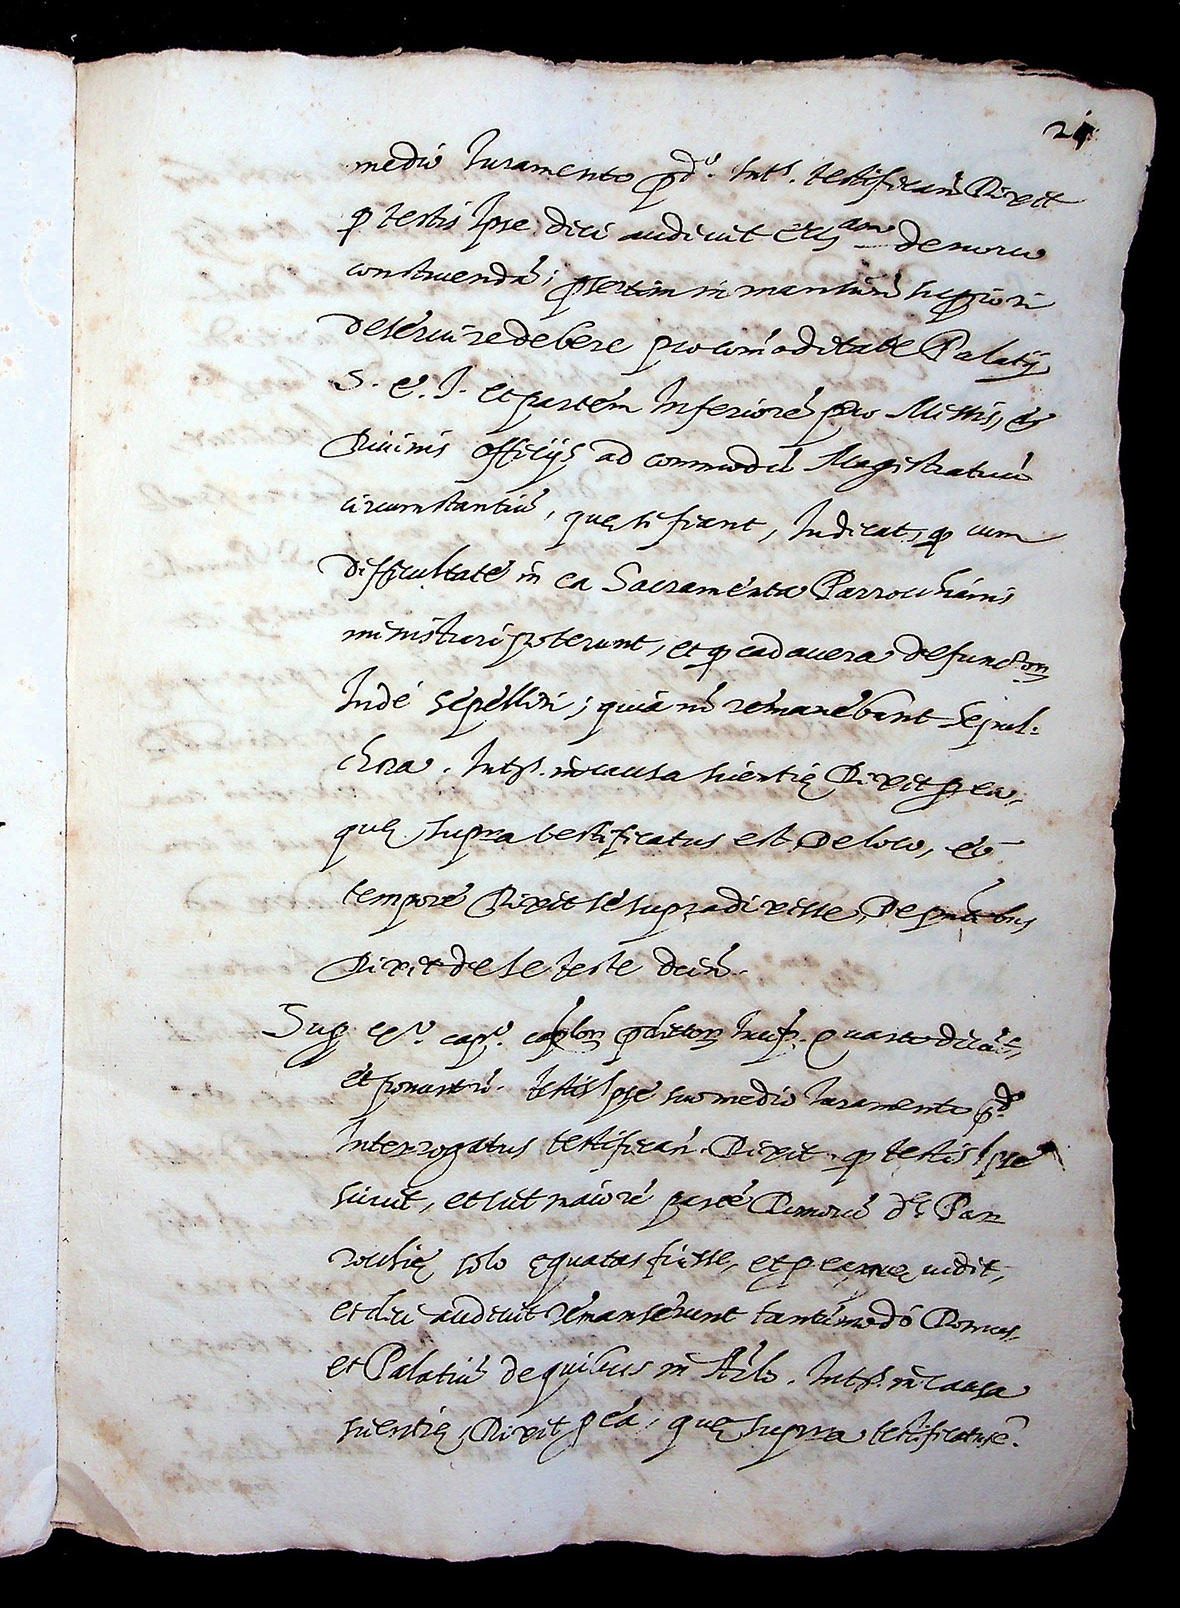 21
medio Iuramento pd.º Int.s testifican. Dixit
q testis Ipse dici audivit Eccl.am de novo
construendã; psertim in mansũm supiori
deservire debere pro comoditate Palatij
S. E. I. et partem Inferiorẽ pro Missis, et
Divinis officijs ad commodũ Magistratuũ
circumstantiũ, quę si fiant, Iudicat, q cum
difficultate in ea Sacramenta Parrochianis
ministrari poterunt, et q cadavera defunctor.
Inde sepelliri; quia nõ remanebunt sepul:
chra. Int.s in causa scientię Dixit p ea,
quę supra testificatus est, De loco, et
tempore Dixit se supra dixisse, De pntibus
Dixit de se teste dein.
Sup cº. cap.º caplor. pdictor. Inci. Quarto dicũt,
et ponunt. testis Ipse suo medio Iuramento pd.º
Interrogatus testifican. Dixit q testis Ipse
scivit, et scit maiorẽ partẽ Domorũ d.ę Par
rochię solo equatas fuisse, et p ea, quę vidit,
et dici audivit remanserunt tantũmodo Domus,
et Palatiũ de quibus in Artlo. Int.s in causa
scientię Dixit p ea, quę supra testificatus ẽ.